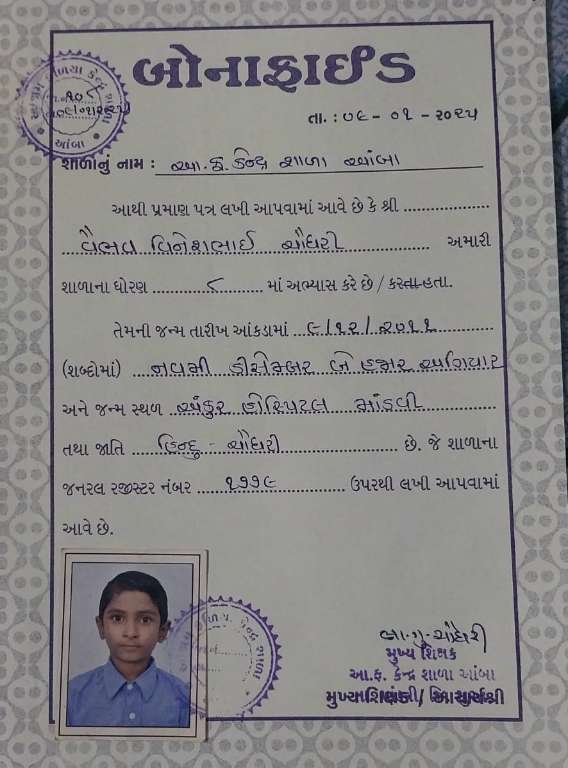 બોનાફાઈડ
તા. : ૦૯ - ૦૧ - ૨૦૨૫
શાળાનું નામ : આ. ફ. કેન્દ્ર શાળા આંબા
આથી પ્રમાણ પત્ર લખી આપવામાં આવે છે કે શ્રી
વૈભવ વિનેશભાઈ ચૌધરી અમારી
શાળાના ધોરણ ૮ માં અભ્યાસ કરે છે / કરતા હતા.
તેમની જન્મ તારીખ આંકડામાં ૯/૧૨/૨૦૧૧
(શબ્દોમાં) નવમી ડીસેમ્બર બે હજાર અગિયાર
અને જન્મ સ્થળ અંકુર હોસ્પિટલ માંડવી
તથા જાતિ હિન્દુ - ચૌધરી છે. જે શાળાના
જનરલ રજીસ્ટર નંબર ૧૭૭૯ ઉપરથી લખી આપવામાં
આવે છે.
બા.ગુ.ચૌધરી
મુખ્ય શિક્ષક
આ.ફ. કેન્દ્ર શાળા આંબા